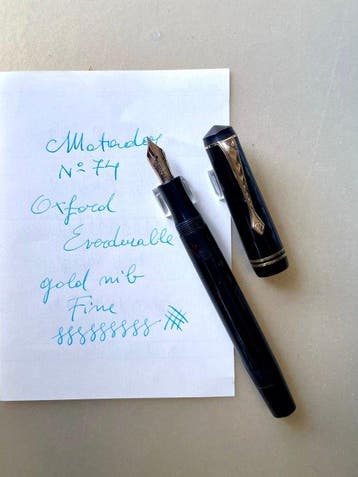 Matador
Nº 74
Oxford
Everdurable
gold nib
Fine